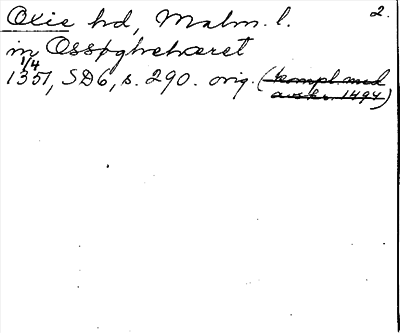 Oxie hd, Malm. l. 2.
in Osspghrehæret
1/4
1351, SD6, s. 290. orig. (kompl. med
avskr. 1494)